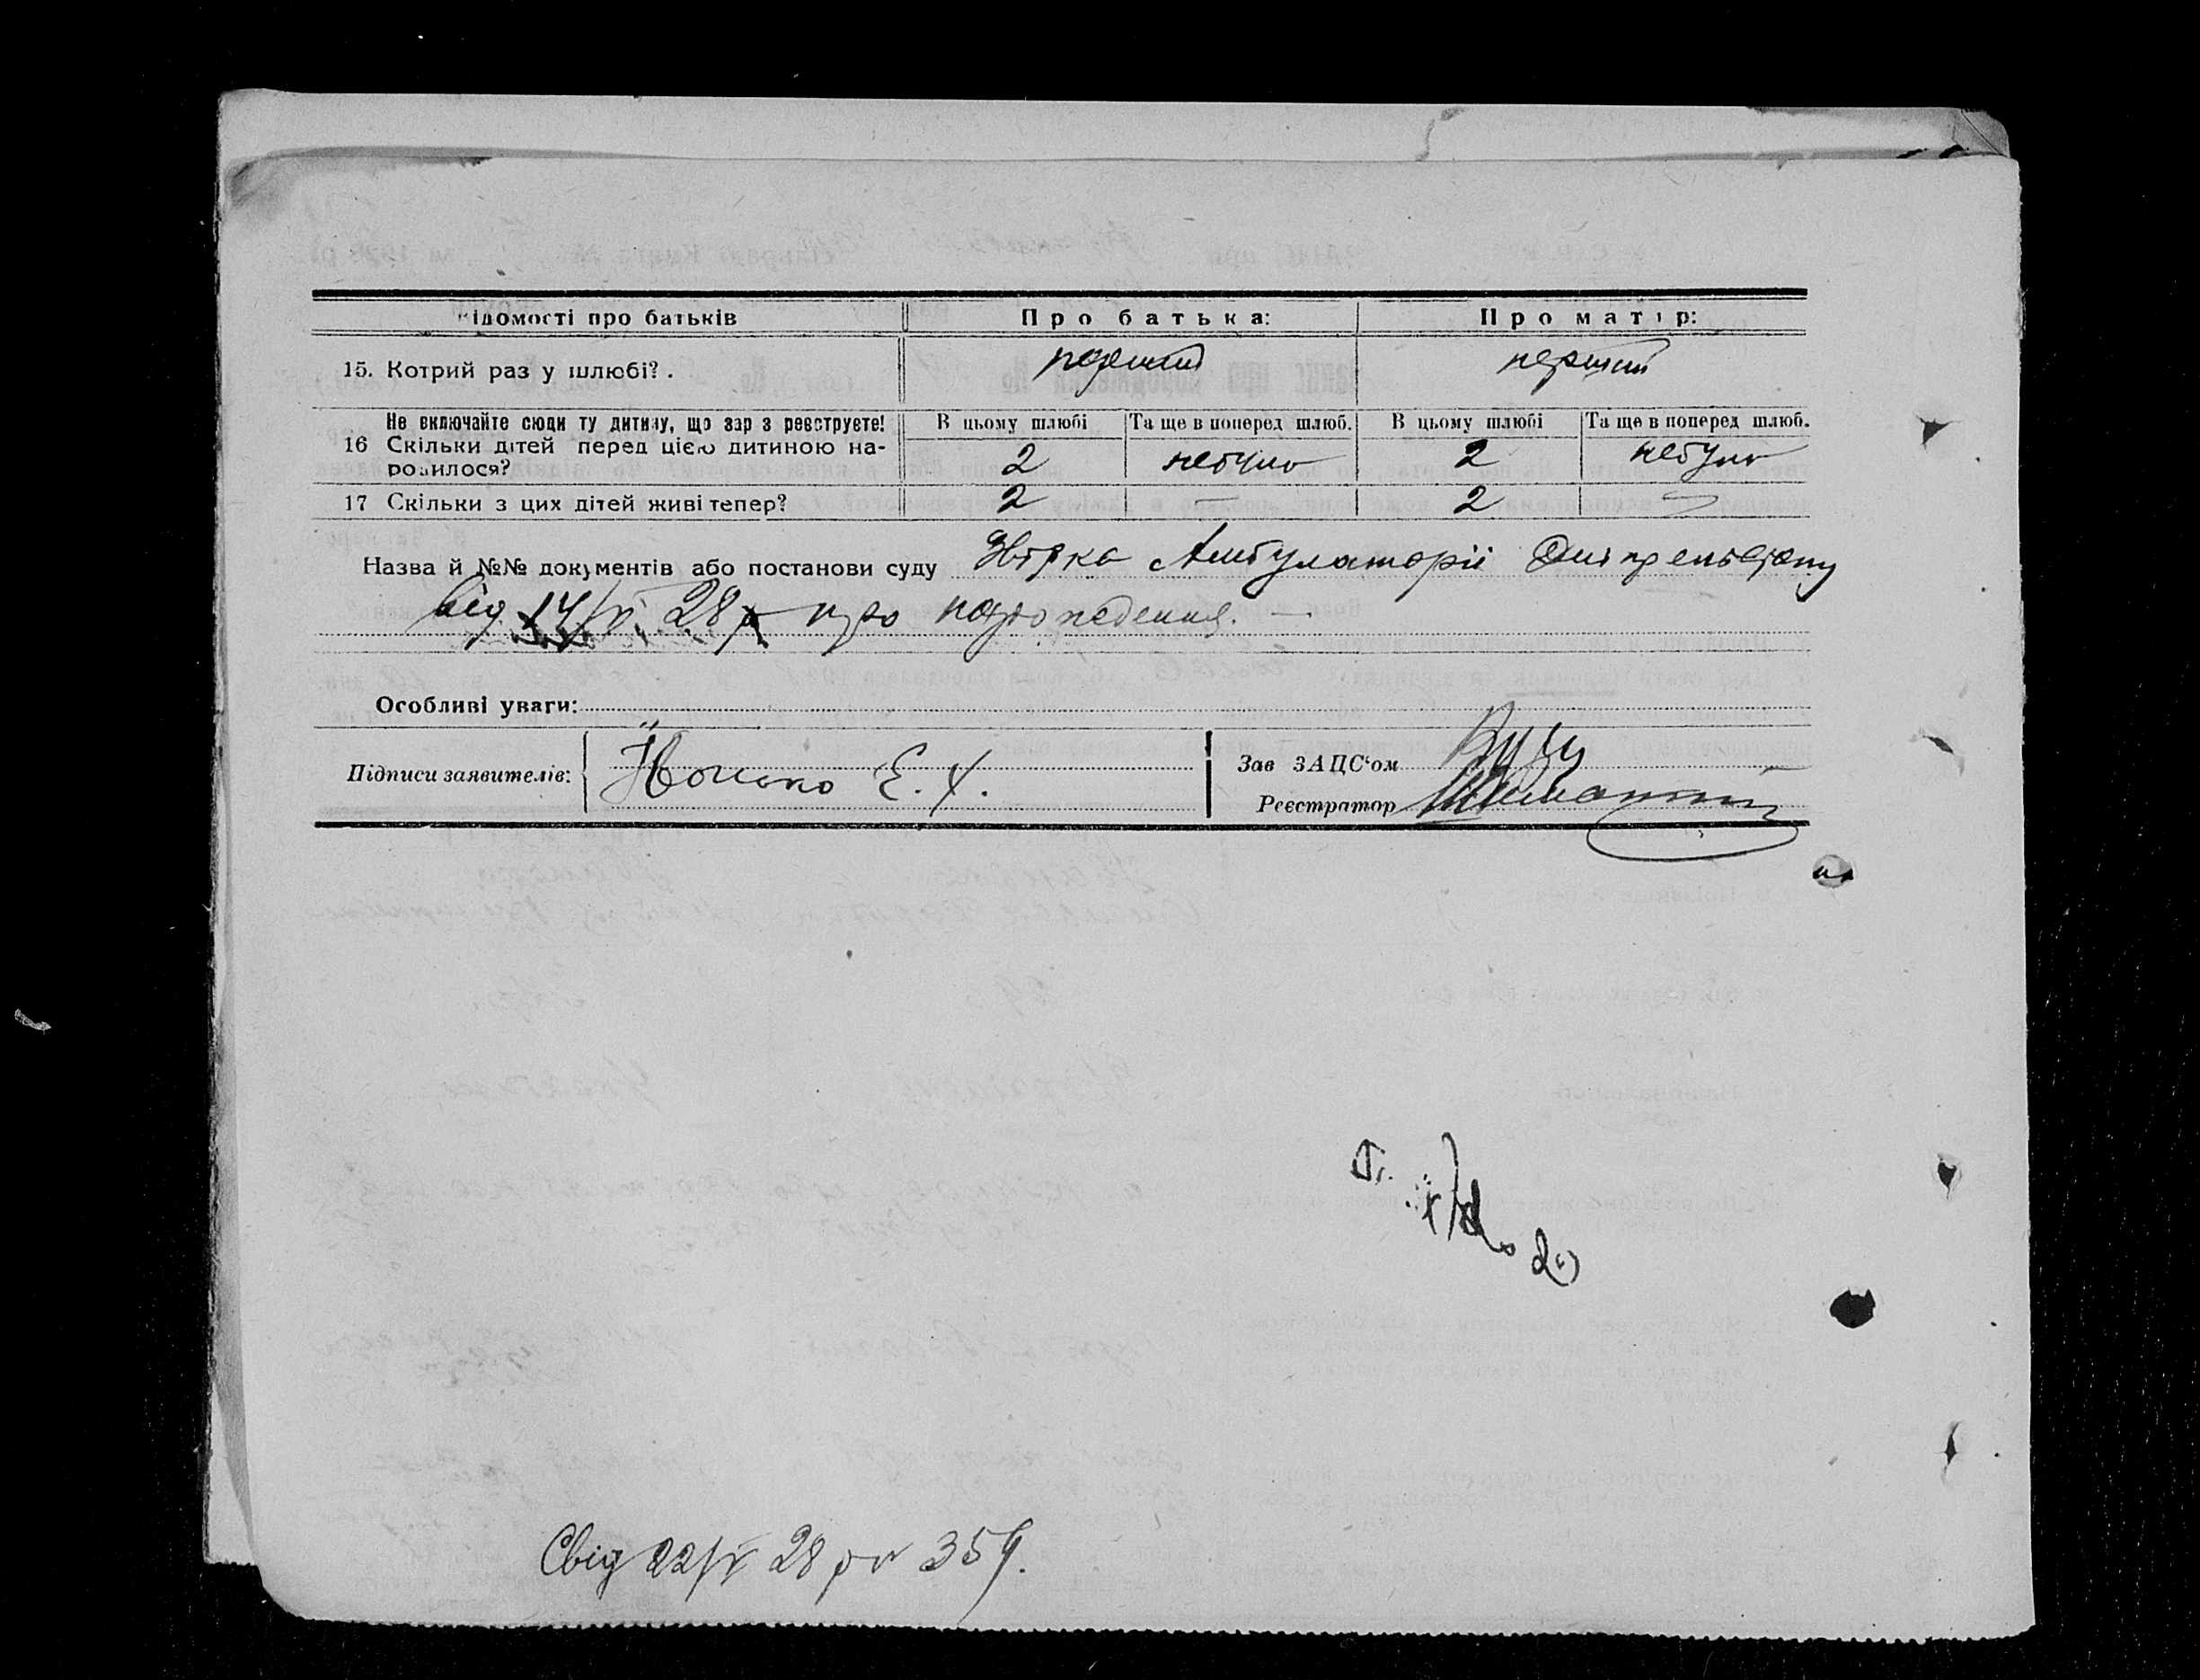 ідомості про батьків Про батька: Про матір:
15. Котрий раз у шлюбі?. перший перший
Не включайте сюди ту дитину, що зар з реєструєте! В цьому шлюбі Та ще в поперед шлюб. В цьому шлюбі Та ще в поперед шлюб.
16 Скільки дітей перед цією дитиною на-
родилося? 2 небуло 2 небуло
17 Скільки з цих дітей живі тепер? 2 — 2 —
Назва й №№ документів або постанови суду Амбулаторії
від 14/V 28 р про народження. —
Особливі уваги:
Підписи заявителів: Е. Х. Зав ЗАЦС'ом
Реєстратор
Свід 22/V 28 р № 359.